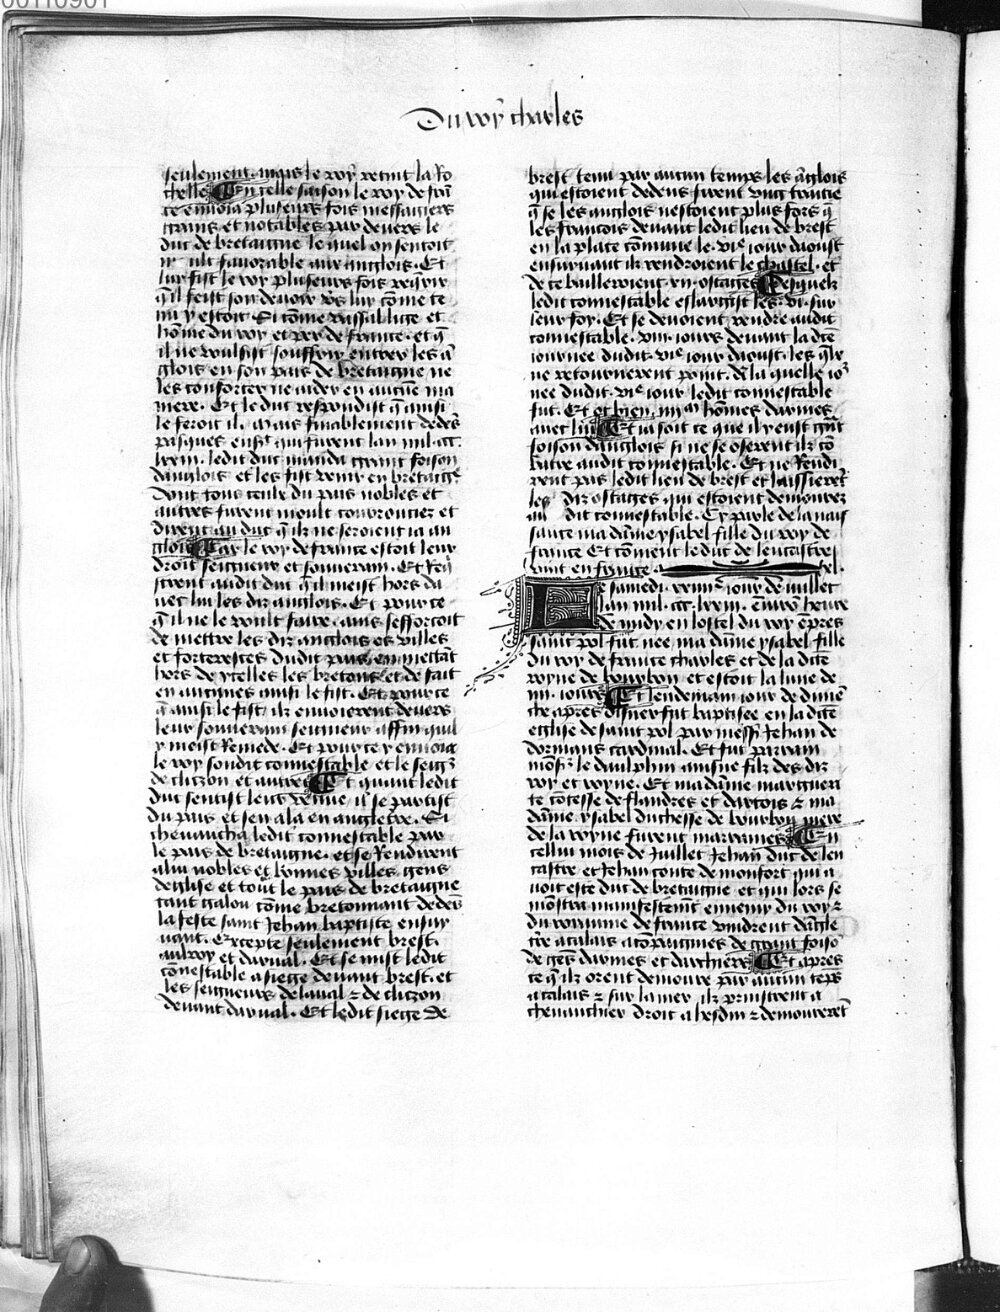 Du roy charles
seulement. mais le roy retint la Ro
chelle En celle saison le roy de frā
ce envoia pluseurs fois messaigiers
grans et notables par devers le
duc de bretaigne le quel on sentoit
favorable aux anglois. Et
luy fist le roy pluseurs fois reqr̄ir
q̄ il feist son devoir vs luy cōme te
nu y estoit. Et cōme vassal lige et
hōme du roy et per de france. et q̄
il ne voulsist souffrir entrer les ā
glois en son pais de bretaigne ne
les conforter ne aider en aucūe ma
niere. Et le duc respondist q̄ ainsi
le feroit il. mais finablement dedēs
pasques ensꝰ qui furent lan mil. ccc.
lxxiii. ledit duc manda grant foison
danglois et les fist venir en bretaigꝰ
dont tous ceulx du pais nobles et
autres furent moult courrouciez et
dirent au duc q̄ ilz ne seroient ia an
glois Car le roy de france estoit leur
droit seigneur et souverain. Et req̄
strent audit duc q̄ il meist hors da
vec lui les diz anglois. Et pour ce
q̄ il ne le voult faire. ains sefforcoit
de mettre les diz anglois es villes
et forteresces dudit pais en mettāt
hors de ycelles les bretons et de fait
en aucunes ainsi le fist. Et pour ce
q̄ ainsi le fist ilz envoierent devers
leur souverain seigneur affin quil
y meist Remede. Et pour ce y envoia
le roy son dit connestable et le seigꝰ
de clicon et autres Et quant ledit
duc sentist leur venue il se partist
du pais et sen ala en angleterre. Et
chevaucha ledit connestable par
le pais de bretaigne. et se Rendirent
a lui nobles et bonnes villes gens
deglise et tout le pais de bretaigne
tant galou cōme bretonnant dedēs
la feste saint Jehan baptiste ensuy
uant. Excepte seulement brest.
aulroy et darual. Et se mist ledit
cōnestable a siege devant brest. et
les seigneurs de laval ⁊ de clicon
devant darual. Et ledit siege de
brest tenu par aucun temps les āglois
qui estoient dedens firent ung traictie
q̄ se les anglois nestoient plus fors q̄
les francois devant ledit lieu de brest
en la place cōmune le. vie iour daoust
ensuyuant ilz rendroient le chastel. et
de ce bailleroient. vi. ostages Desquelz
ledit connestable eslargist les. vi. sur
leur foy. Et se devoient rendre audit
connestable. viii. iours devant la dicte
iournee dudit. vie iour daoust. les qle
ne retournerent point. A la quelle io
nee dudit. vie iour ledit connestable
fut. Et ot bien. iiiiᵐ hōmes darmes
avec lui Et ia soit ce que il y eust grāt
foison danglois si ne se oserent ilz cō
batre audit connestable. Et ne Rendi
rent pas ledit lieu de brest et laissierēt
les diz ostages qui estoient demourez
au dit connestable. Cy parle de la nais
sance ma dame ysabel fille du roy de
france Et cōment le duc de lencastre
vint en france.
Le samedi. xxiiiie iour de iuillet
lan mil. ccc. lxxiii. ēuirō heure
de midy en lostel du roy ēpres
saint pol fut nee ma dāme ysabel fille
du roy de france charles et de la dicte
royne de bourbon et estoit la lune de
iiii. iours Et lendemain iour de dimē
che apres disner fut baptisee en la dicte
eglise de saint pol par messꝰ Jehan de
dormans cardinal. Et fut parrain
monsꝰ le daulphin ainsne filz des diz
roy et royne. Et madāme marguerī
te cōtesse de flandres et dartois ⁊ ma
dāme. ysabel duchesse de bourbon mere
de la royne furent marraines En
cellui mois de Juillet Jehan duc de len
castre et Jehan conte de monfort qui a
uoit este duc de bretaigne et qui lors se
mōstra manifestemēt ennemy du roy ⁊
du royaume de france vindrent dāgle
tre a calais acōpaignies de grant foisō
de gēs darmes et darchiers Et apres
ce q̄ ilz orent demoure par aucun tēps
a calais ⁊ sur la mer ilz prinstrent a
chevauchier droit a hesdin ⁊ demourerēt